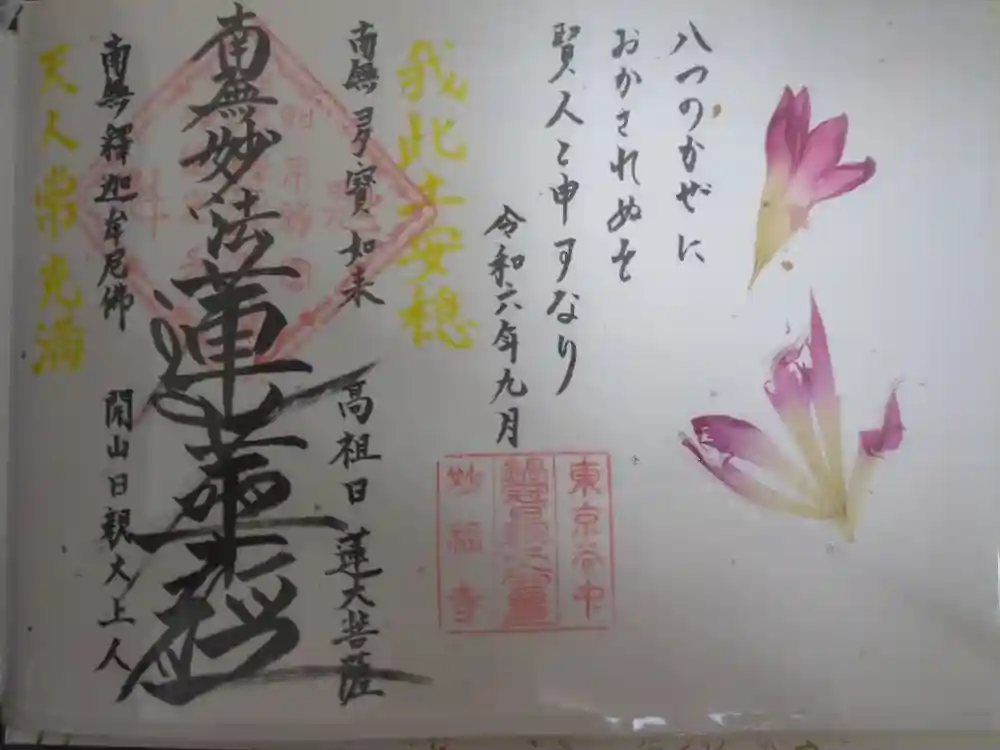 八つのかぜに
おかされぬを
賢人と申すなり
令和六年九月
東京谷中
妙福寺
我此土安穏
南無多寳如来
高祖日蓮大菩薩
南無妙法蓮華経
南無釋迦牟尼佛
開山日親大上人
天人常充満